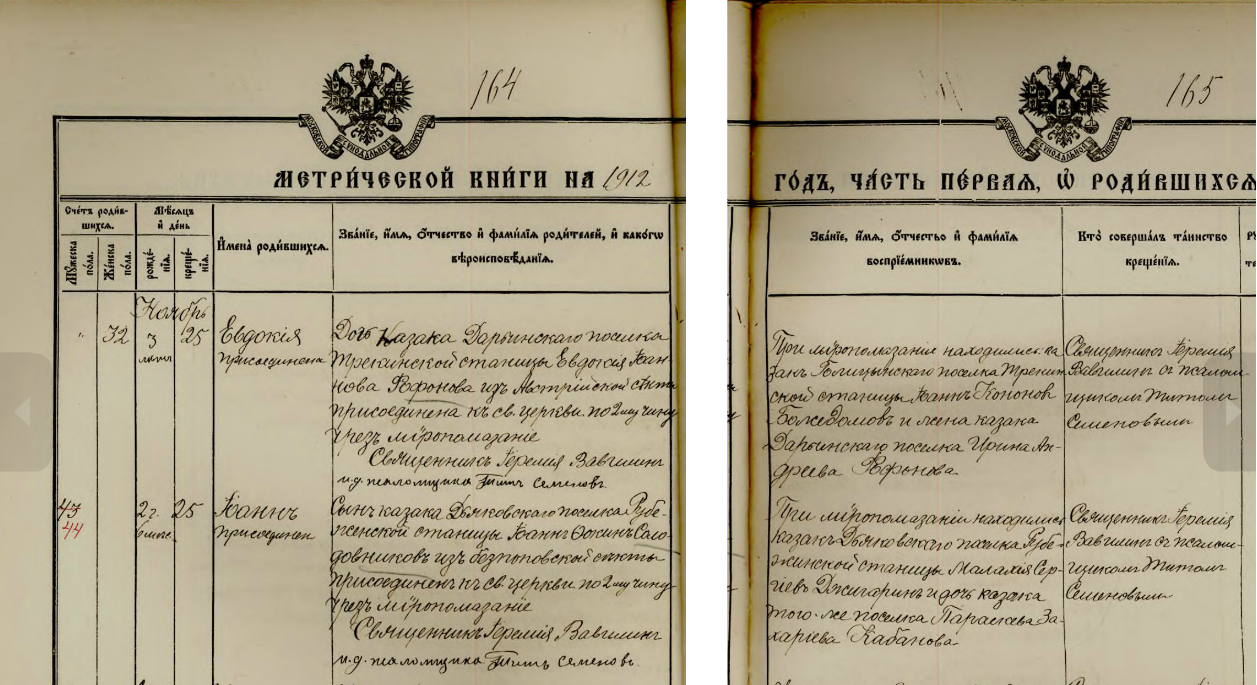 164
МОСКОВСКОЙ СѴНОДАЛЬНОЙ ТИПОГРАФІИ
МЕТРИ́ЧЕСКОЙ КНИ́ГИ НА 1912
Сче́тъ роди́в-
шихся.
Мѣ́сяцъ
и҆ де́нь
Му́жеска
по́ла.
Же́нска
по́ла.
рожде́-
нїя.
креще́-
нїя.
И҆мена̀ роди́вшихся.
Зва́нїе, и҆́мя, ѻ҆́тчество и҆ фами́лїя роди́телей, и҆ како́гѡ
вѣроисповѣ́данїя.
Ноябрь
" 32 3 25
Евдокія
присоединена
Дочь казака Дарьинскаго поселка
Трекинской станицы Евдокія Іоан-
нова Яфонова изъ Австрійской секты
присоединена къ св. церкви по 2му чину
чрезъ мѵропомазаніе
Священникъ Іеремія Вавилинъ
и.д. псаломщика Титъ Семеновъ.
43
44
2 г. 25
6 мѣс.
Іоаннъ
присоединен
Сынъ казака Дьяковскаго поселка Рубе-
женской станицы Іоаннъ Фокинъ Соло-
довниковъ изъ безпоповской секты
присоединенъ къ св. церкви по 2му чину
чрезъ мѵропомазаніе
Священникъ Іеремія Вавилинъ
и.д. псаломщика Титъ Семеновъ.
165
МОСКОВСКОЙ СѴНОДАЛЬНОЙ ТИПОГРАФІИ
ГО́ДЪ, ЧА́СТЬ ПЕ́РВАЯ, Ѡ҆ РОДИ́ВШИХСЯ
Зва́нїе, и҆́мя, ѻ҆́тчество и҆ фами́лїя
воспрїе́мникѡвъ.
Кто̀ соверша́лъ та́инство
креще́нїя.
При мѵропомазаніи находились: ка-
закъ Голицынскаго поселка Трекин-
ской станицы Іоаннъ Кононов
Божедомовъ и жена казака
Дарьинскаго поселка Ирина Ан-
дреева Яфонова
Священникъ Іеремія
Вавилинъ съ псалом-
щикомъ Титомъ
Семеновымъ
При мѵропомазаніи находились
казакъ Дьяковскаго поселка Рубе-
жинской станицы Малахія Сер-
гіевъ Джигаринъ и дочь казака
того-же поселка Параскева За-
харіева Кабанова
Священникъ Іеремія
Вавилинъ съ псалом-
щикомъ Титомъ
Семеновымъ